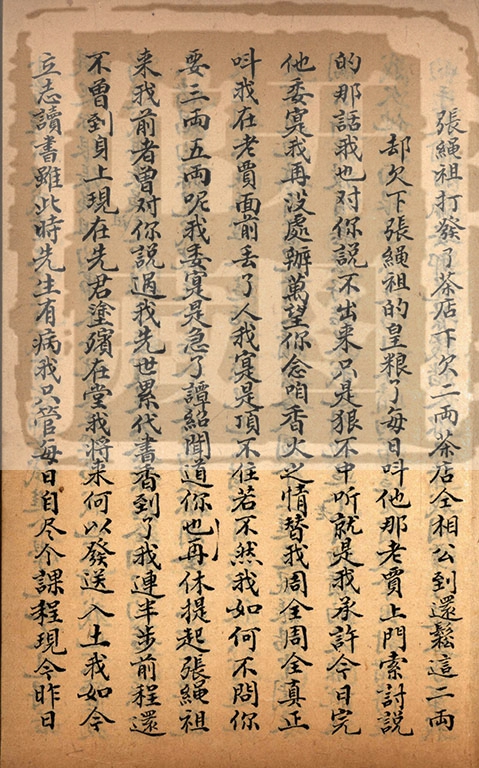 張繩祖打發了茶店下欠二兩茶店仝相公到還鬆這二兩
却欠下張繩祖的皇粮了每日呌他那老賈上門索討說
的那話我也对你說不出来只是狠不中听就是我承許今日完
他委寔我再没處辦萬望你念咱香火之情替我周全周全真正
呌我在老賈面前丢了人我寔是頂不住若不然我如何不問你
要三兩五兩呢我委寔是急了譚紹聞道你也再休提起張繩祖
来我前者曾对你説過我先世累代書香到了我連半步前程還
不曾到身上現在先君塗殯在堂我将来何以發送入土我如今
立志讀書雖此時先生有病我只管每日自尽个課程現今昨日